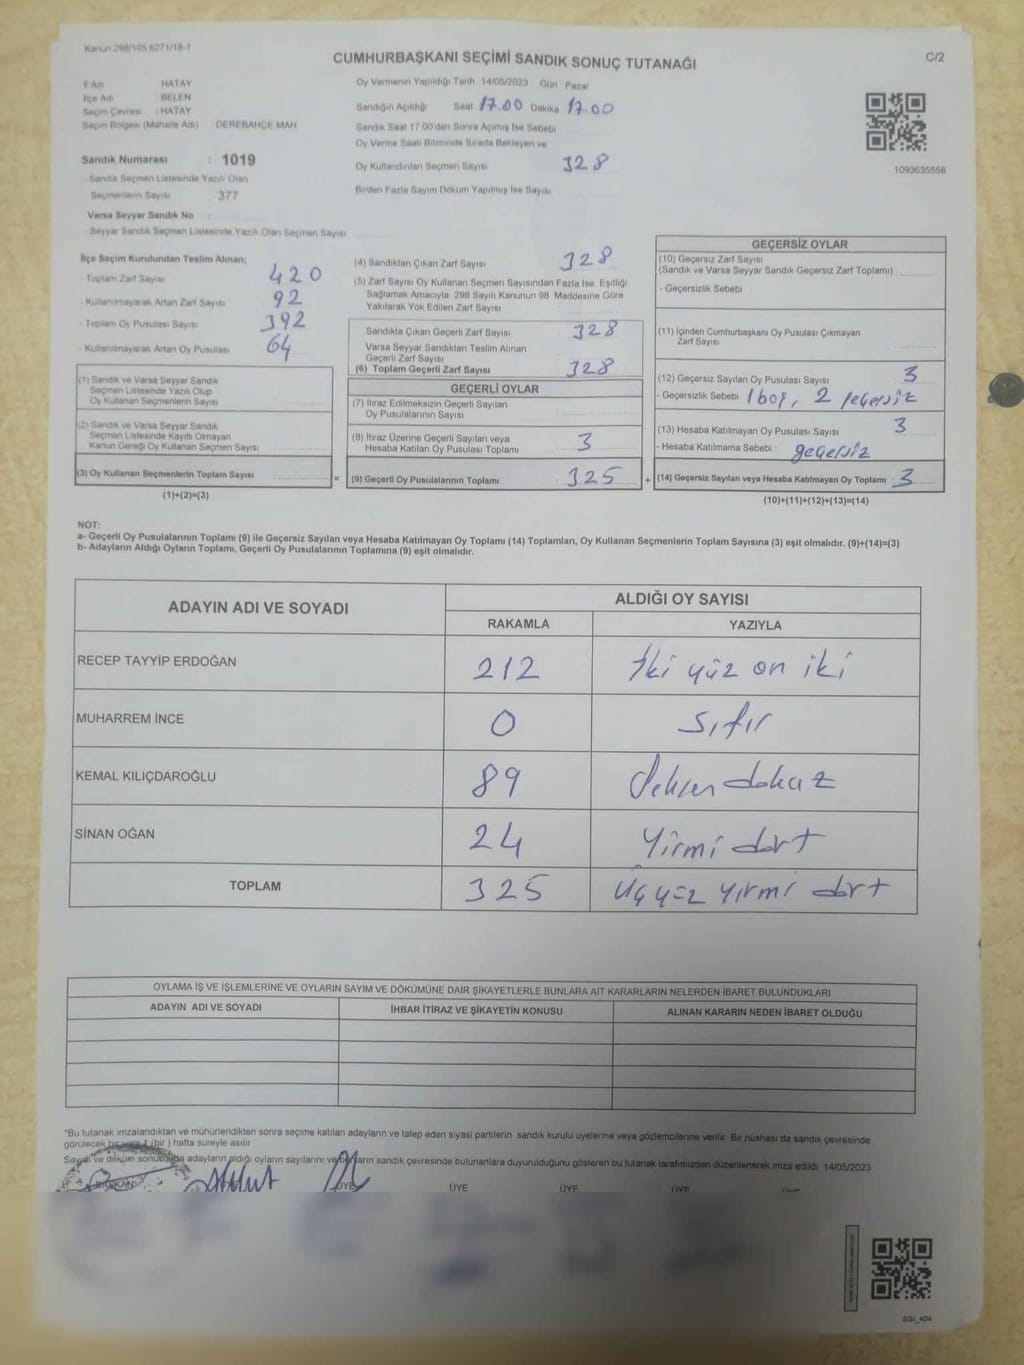 Kanun:298/105.6271/18-1
CUMHURBAŞKANI SEÇİMİ SANDIK SONUÇ TUTANAĞI
C/2
İl Adı HATAY
İlçe Adı BELEN
Seçim Çevresi : HATAY
Seçim Bölgesi (Mahalle Adı) DEREBAHÇE MAH
Sandık Numarası : 1019
- Sandık Seçmen Listesinde Yazılı Olan
Seçmenlerin Sayısı : 377
Varsa Seyyar Sandık No
- Seyyar Sandık Seçmen Listesinde Yazılı Olan Seçmen Sayısı
Oy Vermenin Yapıldığı Tarih 14/05/2023 Gün Pazar
Sandığın Açıldığı Saat 17.00 Dakika 17.00
Sandık Saat 17:00'den Sonra Açımış İse Sebebi
Oy Verme Saati Bitiminde Sırada Bekleyen ve
Oy Kullandırılan Seçmen Sayısı 328
Birden Fazla Sayım Döküm Yapılmış İse Sayısı
1093635558
İlçe Seçim Kurulundan Teslim Alınan;
- Toplam Zarf Sayısı 420
- Kullanılmayarak Artan Zarf Sayısı 92
- Toplam Oy Pusulası Sayısı 392
- Kullanılmayarak Artan Oy Pusulası 64
(1) Sandık ve Varsa Seyyar Sandık
Seçmen Listesinde Yazılı Olup
Oy Kullanan Seçmenlerin Sayısı
(2) Sandık ve Varsa Seyyar Sandık
Seçmen Listesinde Kayıtlı Olmayan
Kanun Gereği Oy Kullanan Seçmen Sayısı
(3) Oy Kullanan Seçmenlerin Toplam Sayısı =
(1)+(2)=(3)
(4) Sandıktan Çıkan Zarf Sayısı 328
(5) Zarf Sayısı Oy Kullanan Seçmen Sayısından Fazla İse, Eşitliği
Sağlamak Amacıyla, 298 Sayılı Kanunun 98 Maddesine Göre
Yakılarak Yok Edilen Zarf Sayısı
Sandıkta Çıkan Geçerli Zarf Sayısı 328
Varsa Seyyar Sandıktan Teslim Alınan
Geçerli Zarf Sayısı
(6) Toplam Geçerli Zarf Sayısı 328
GEÇERLİ OYLAR
(7) İtiraz Edilmeksizin Geçerli Sayılan
Oy Pusulalarının Sayısı
(8) İtiraz Üzerine Geçerli Sayılan veya
Hesaba Katılan Oy Pusulası Toplamı 3
(9) Geçerli Oy Pusulalarının Toplamı 325 +
GEÇERSİZ OYLAR
(10) Geçersiz Zarf Sayısı
(Sandık ve Varsa Seyyar Sandık Geçersiz Zarf Toplamı)
- Geçersizlik Sebebi
(11) İçinden Cumhurbaşkanı Oy Pusulası Çıkmayan
Zarf Sayısı
(12) Geçersiz Sayılan Oy Pusulası Sayısı 3
- Geçersizlik Sebebi 1 boş, 2 geçersiz
(13) Hesaba Katılmayan Oy Pusulası Sayısı 3
- Hesaba Katılmama Sebebi : geçersiz
(14) Geçersiz Sayılan veya Hesaba Katılmayan Oy Toplamı : 3
(10)+(11)+(12)+(13)=(14)
NOT:
a- Geçerli Oy Pusulalarının Toplamı (9) ile Geçersiz Sayılan veya Hesaba Katılmayan Oy Toplamı (14) Toplamları, Oy Kullanan Seçmenlerin Toplam Sayısına (3) eşit olmalıdır. (9)+(14)=(3)
b- Adayların Aldığı Oyların Toplamı, Geçerli Oy Pusulalarının Toplamına (9) eşit olmalıdır.
ADAYIN ADI VE SOYADI
ALDIĞI OY SAYISI
RAKAMLA YAZIYLA
RECEP TAYYİP ERDOĞAN 212 İki yüz on iki
MUHARREM İNCE 0 Sıfır
KEMAL KILIÇDAROĞLU 89 Seksen dokuz
SİNAN OĞAN 24 Yirmi dört
TOPLAM 325 Üç yüz yirmi dört
OYLAMA İŞ VE İŞLEMLERİNE VE OYLARIN SAYIM VE DÖKÜMÜNE DAİR ŞİKAYETLERLE BUNLARA AİT KARARLARIN NELERDEN İBARET BULUNDUKLARI
ADAYIN ADI VE SOYADI İHBAR İTİRAZ VE ŞİKAYETİN KONUSU ALINAN KARARIN NEDEN İBARET OLDUĞU
*Bu tutanak imzalandıktan ve mühürlendikten sonra seçime katılan adayların ve talep eden siyasi partilerin sandık kurulu üyelerine veya gözlemcilerine verilir. Bir nüshası da sandık çevresinde
görülecek bir yere 1 (bir ) hafta süreyle asılır
Sayım ve döküm sonucunda adayların aldığı oyların sayılarını ve bunların sandık çevresinde bulunanlara duyurulduğunu gösteren bu tutanak tarafımızdan düzenlenerek imza edildi. 14/05/2023
BAŞKAN ÜYE ÜYE ÜYE ÜYE ÜYE